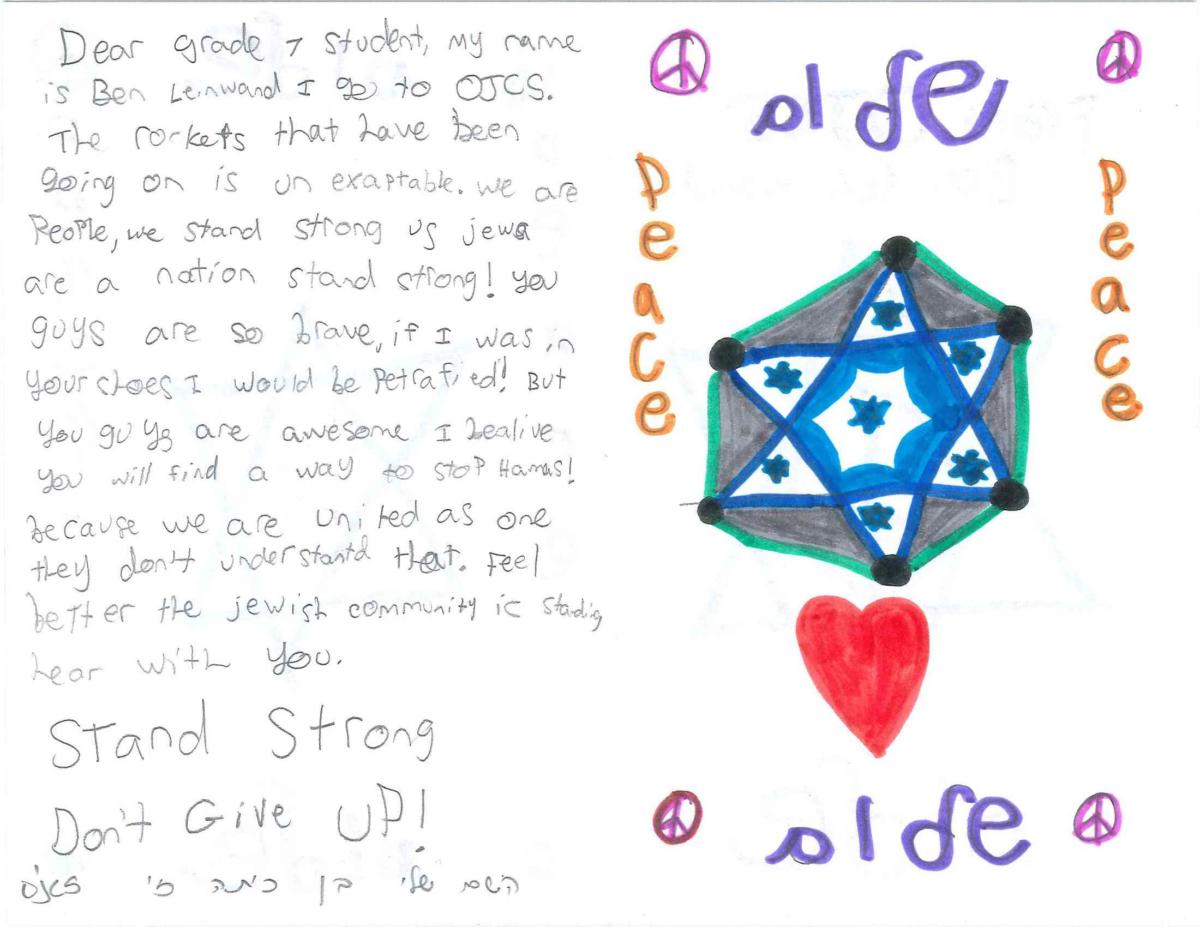 Dear grade 7 student, my name
is Ben Leinwand I go to OJCS.
The rockets that have been
going on is un exaptable. we are
People, we stand strong us jews
are a nation stand strong! you
guys are so brave, if I was in
your shoes I would be Petrafied! But
you guys are awesome I bealive
you will find a way to stop Hamas!
because we are united as one
they don't understantd that. Feel
better the jewish community is standing
hear with you.
Stand Strong
Don't Give UP!
השם שלי בן כיתה
שלום
Peace
Peace
שלום